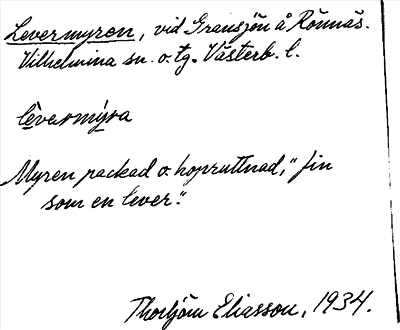 Levermyren, vid Gransjön å Rönnäs.
Vilhelmina sn. o. tg. Västerb. l.
lèvermýra
Myren packad o. hopruttnad, "fin
som en lever".
Thorbjörn Eliasson, 1934.